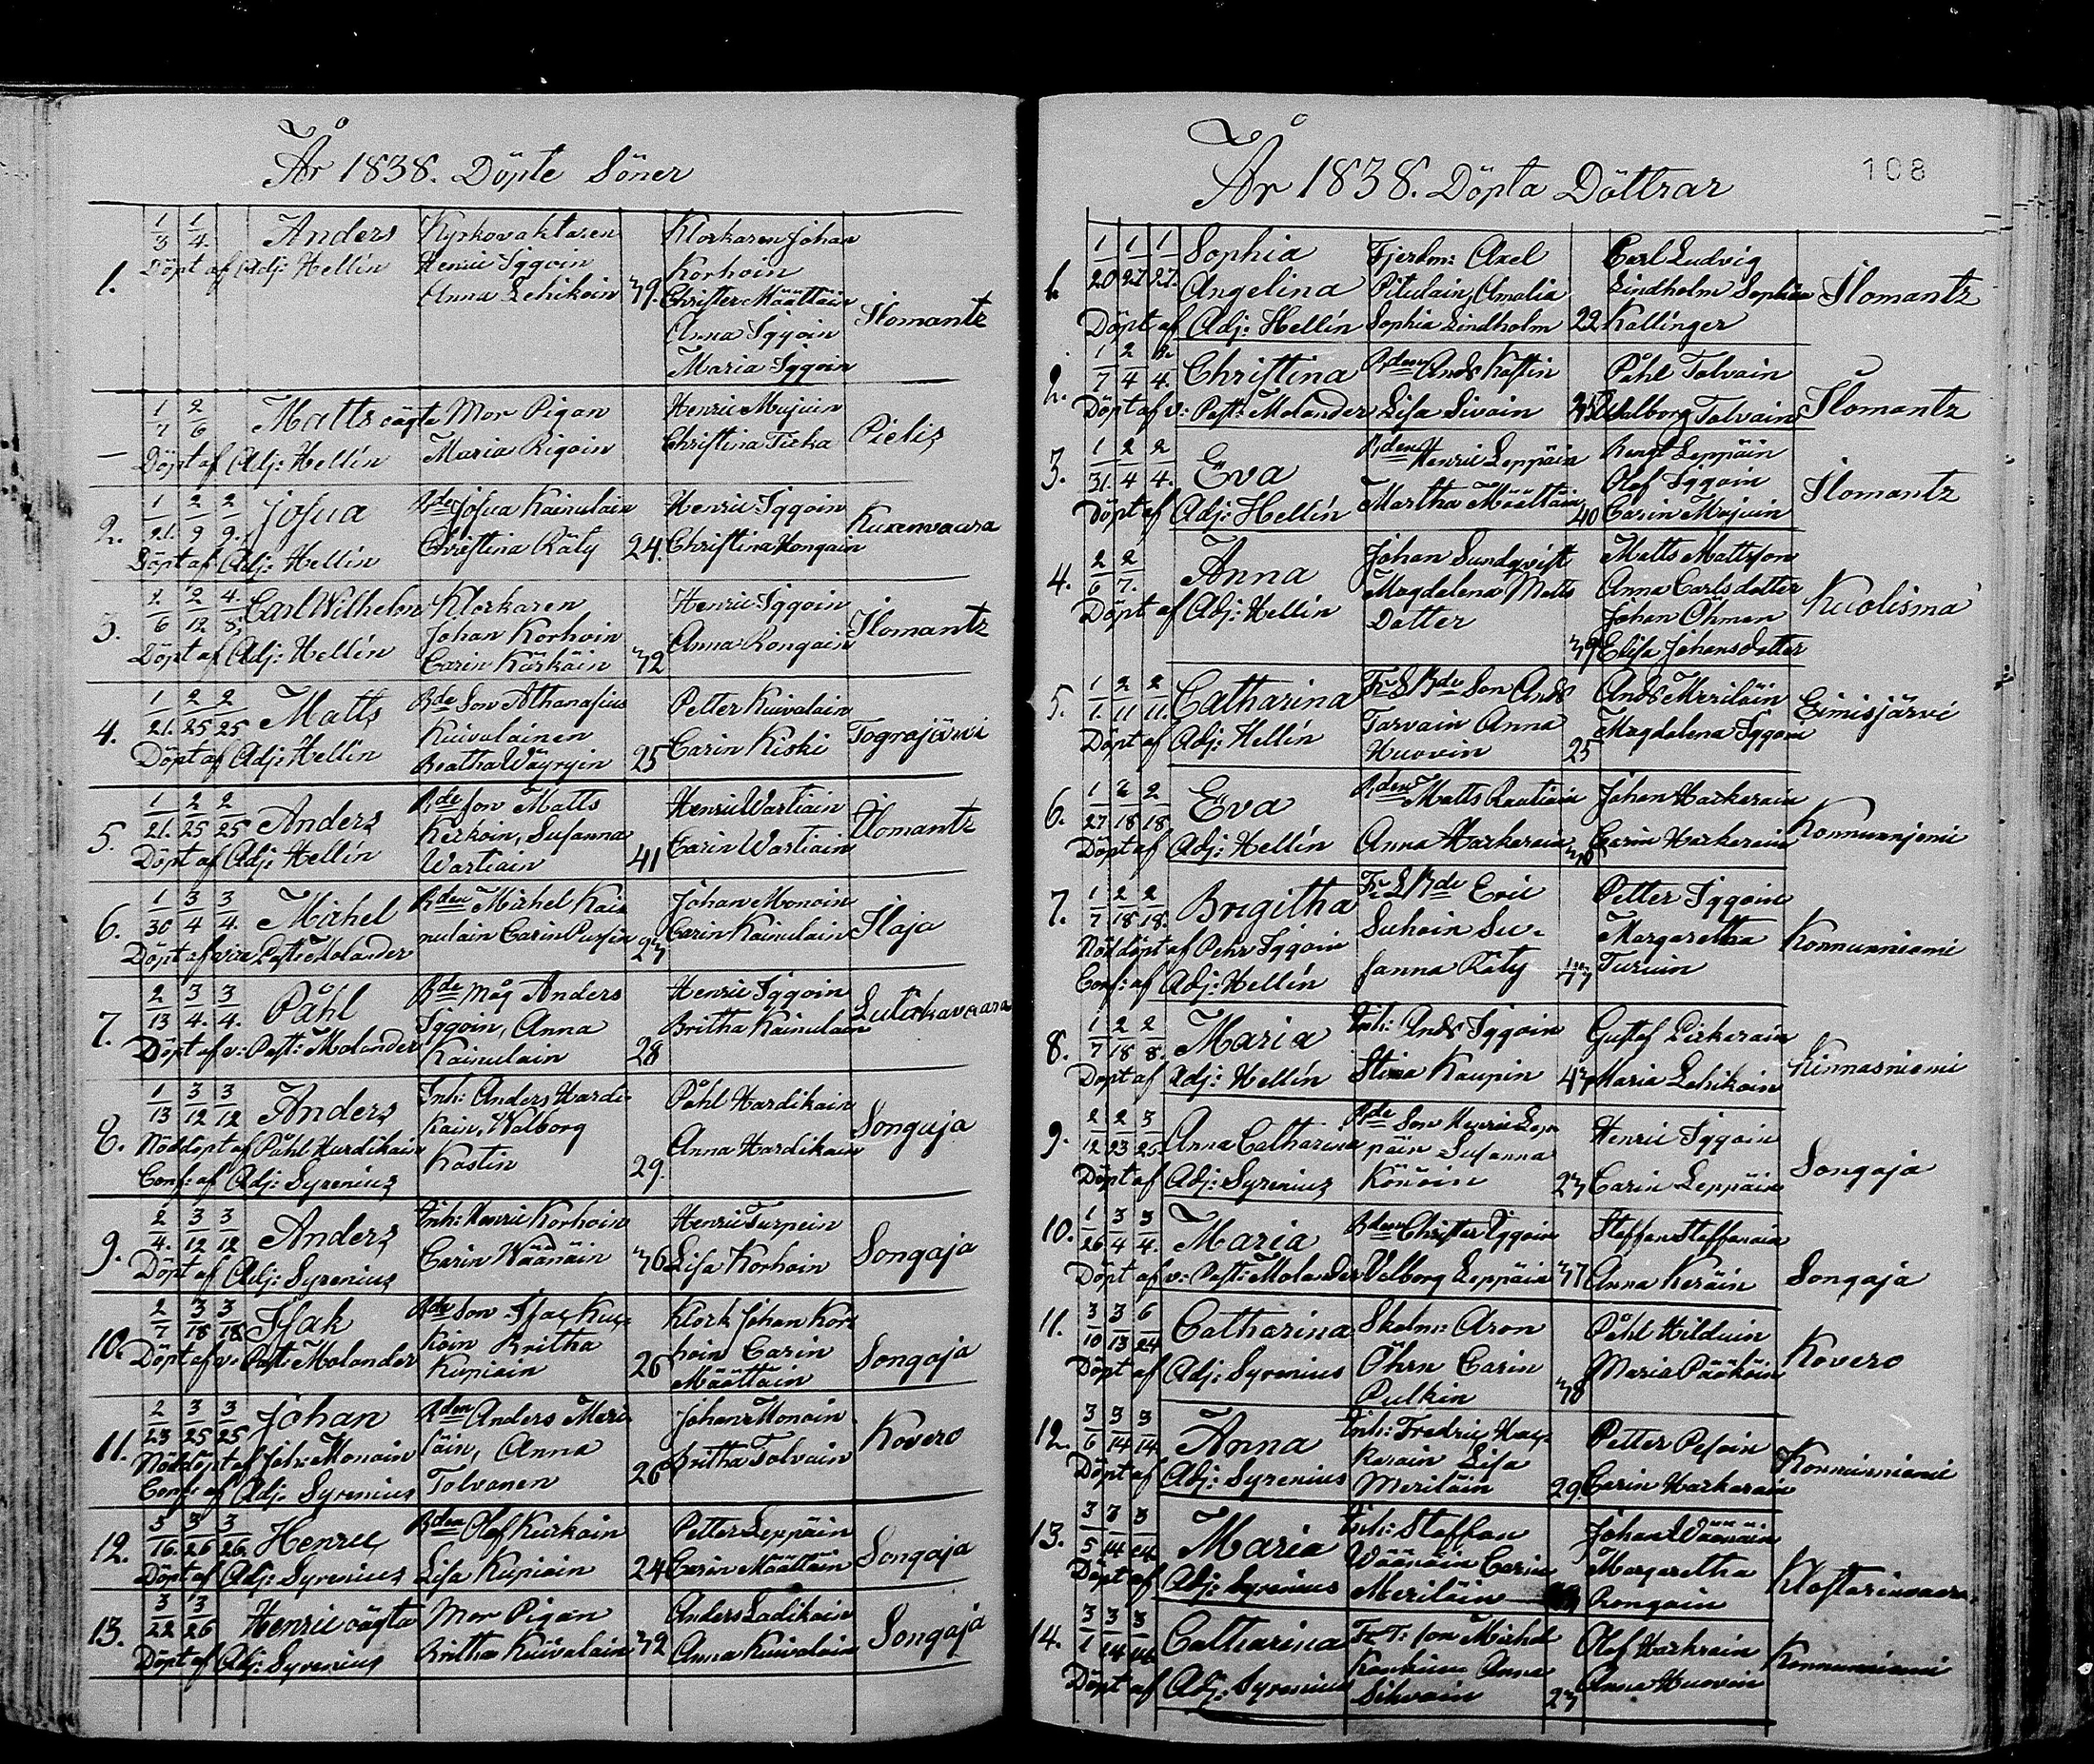 År 1838. Döpte Söner
1. 1/3 1/4. Anders Kyrkovaktaren Klockaren Johan
Döpt af Adj: Hellín Henric Iggoin Korhoin
Anna Lehikoin 39. Christer Määttäin Ilomantz
Anna Iggoin
Maria Iggoin
– 1/7 2/6 Matts oägta Mor Pigan Henric Mujuin
Döpt af Adj: Hellín Maria Rigoin Christina Ticka Pielis
2. 1/21. 2/9 2/9. Josua Bde Josua Kainulain Henric Iggoin Kuxenvaara
Döpt af Adj: Hellín Christina Räty 24. Christina Hongain
3. 2/6 2/12 4/8. Carl Wilhelm Klockaren Henric Iggoin
Döpt af Adj: Hellín Johan Korhoin Anna Rongain Ilomantz
Carin Kärkäin 32
4. 1/21. 2/25 2/25 Matts Bde Son Athanasius Petter Kuivalain
Döpt af Adj: Hellín Kuivalainen Carin Kiski
Beatha Wäyryin 25
5. 1/21. 2/25 2/25 Anders Bde son Matts Henric Wartiain
Döpt af Adj: Hellín Kerkoin, Susanna Carin Wartiain Ilomantz
Wartiain 41
6. 1/30 3/4 3/4. Michel Bden Michel Kai- Johan Monoin Ilaja
Döpt af vice Past: Molander nulain Carin Pursin 23 Carin Kainulain
7. 2/13 3/4. 3/4. Påhl Bde Måg Anders Henric Iggoin
Döpt af v: Past: Molander Iggoin, Anna Britha Kainulain
Kainulain 28
8. 1/13 3/12 3/12 Anders Inh: Anders Hardi- Påhl Hardikain
Nöddöpt af Påhl Hardikain kain, Walborg Anna Hardikain Songaja
Conf: af Adj: Syrenius Kostin 29.
9. 2/4. 3/12 3/12 Anders Inh: Henric Korhoin Henric Turpein
Döpt af Adj: Syrenius Carin Wäänäin 36 Lisa Korhoin Songaja
10. 2/7 3/18 3/18 Isak Bde Son Isac Kuc- Klock Johan Kor-
Döpt af v: Past: Molander koin Britha hoin Carin Songaja
Kupiain 26 Määttäin
11. 2/23 3/25 3/25 Johan Bden Anders Meri- Johan Monoin
Nöddöpt af Joh: Monoin läin, Anna Britha Tolvain Kovero
Conf: af Adj: Syrenius Tolvanen 26
12. 3/16. 3/26 3/26. Henric Bden Olof Kurkoin Petter Leppäin
Döpt af Adj: Syrenius Lisa Kupiain 24 Carin Määttäin Songaja
13. 3/22 3/26 Henric oägta Mor Pigan Anders Ladikain
Döpt af Adj: Syrenius Britha Kuivalain 32 Anna Kuivalain Songaja
År 1838. Döpta Döttrar 108
1. 1/20 1/27 1/27. Sophia Fjerdm: Axel Carl Ludvig
Angelina Pitulain, Amalia Lindholm Sophia Ilomantz
Döpt af Adj: Hellín Sophia Lindholm 22 Kallinger
2. 1/7 2/4 2/4. Christina Bden Ands Kostin Påhl Tolvain
Döpt af v: Past: Molander Lisa Sivain Walborg Tolvain Ilomantz
3. 1/31. 2/4 2/4. Eva Bden Henric Leppäin Bengt Leppäin
Döpt af Adj: Hellín Martha Määttäin 40 Olof Iggoin Ilomantz
Carin Mujuin
4. 2/6 2/7. Anna Johan Sundqvist Matts Mattsson
Döpt af Adj: Hellín Magdalena Matts Anna Carlsdotter Kuolisma
Dotter Johan Öhman
39 Elisa Johansdotter
5. 1/1. 2/11 2/11. Catharina Bde Son Ands Ands Meriläin
Döpt af Adj: Hellín Tarvain Anna Magdalena Iggoin Eimisjärvi
Huovin 25
6. 1/27 2/18 2/18 Eva Bden Matts Rautiain Johan Harkarain
Döpt af Adj: Hellín Anna Harkarain Carin Harkarain
7. 1/7 2/18 2/18. Bregitha Bde Eric Petter Iggoin
Nöddöpt af Pehr Iggoin Suhoin Su- Margaretha Konnunniemi
Conf: af Adj: Hellín sanna Räty Turuin
8. 1/7 2/18 2/8. Maria Inh: Ands Iggoin Gustaf Pirkerain
Döpt af Adj: Hellín Stina Kaupin 43 Maria Lehikoin Kinnasniemi
9. 2/12 2/23 3/25 Anna Catharina Bde Son Henric Lep- Henric Iggoin
Döpt af Adj: Syrenius päin Susanna Carin Leppäin Songaja
Könöin 23
10. 1/26 3/4 3/4. Maria Bden Christer Iggoin Staffan Staffanain
Döpt af v: Past: Molander Valborg Leppäin 37 Anna Keräin Songaja
11. 3/10 3/13 6/24 Catharina Skolm: Aron Påhl Hilduin
Döpt af Adj: Syrenius Öhrn Carin Maria Pääköin Kovero
Pulkin 38
12. 3/6 3/14 3/14 Anna Inh: Fredric Hac- Petter Pesoin
Döpt af Adj: Syrenius karain Lisa Carin Harkarain Konnunniemi
Meriläin 29.
13. 3/5 3/14 3/14 Maria Inh: Staffan Johan Wäänäin
Döpt af Adj: Syrenius Wäänäin Carin Margaretha
Meriläin Rongain
14. 3/1 3/14 3/14 Catharina son Michel Olof Harkrain
Döpt af Adj: Syrenius Konkuin Anna Anna Huovin Konnunniemi
Silvain 23